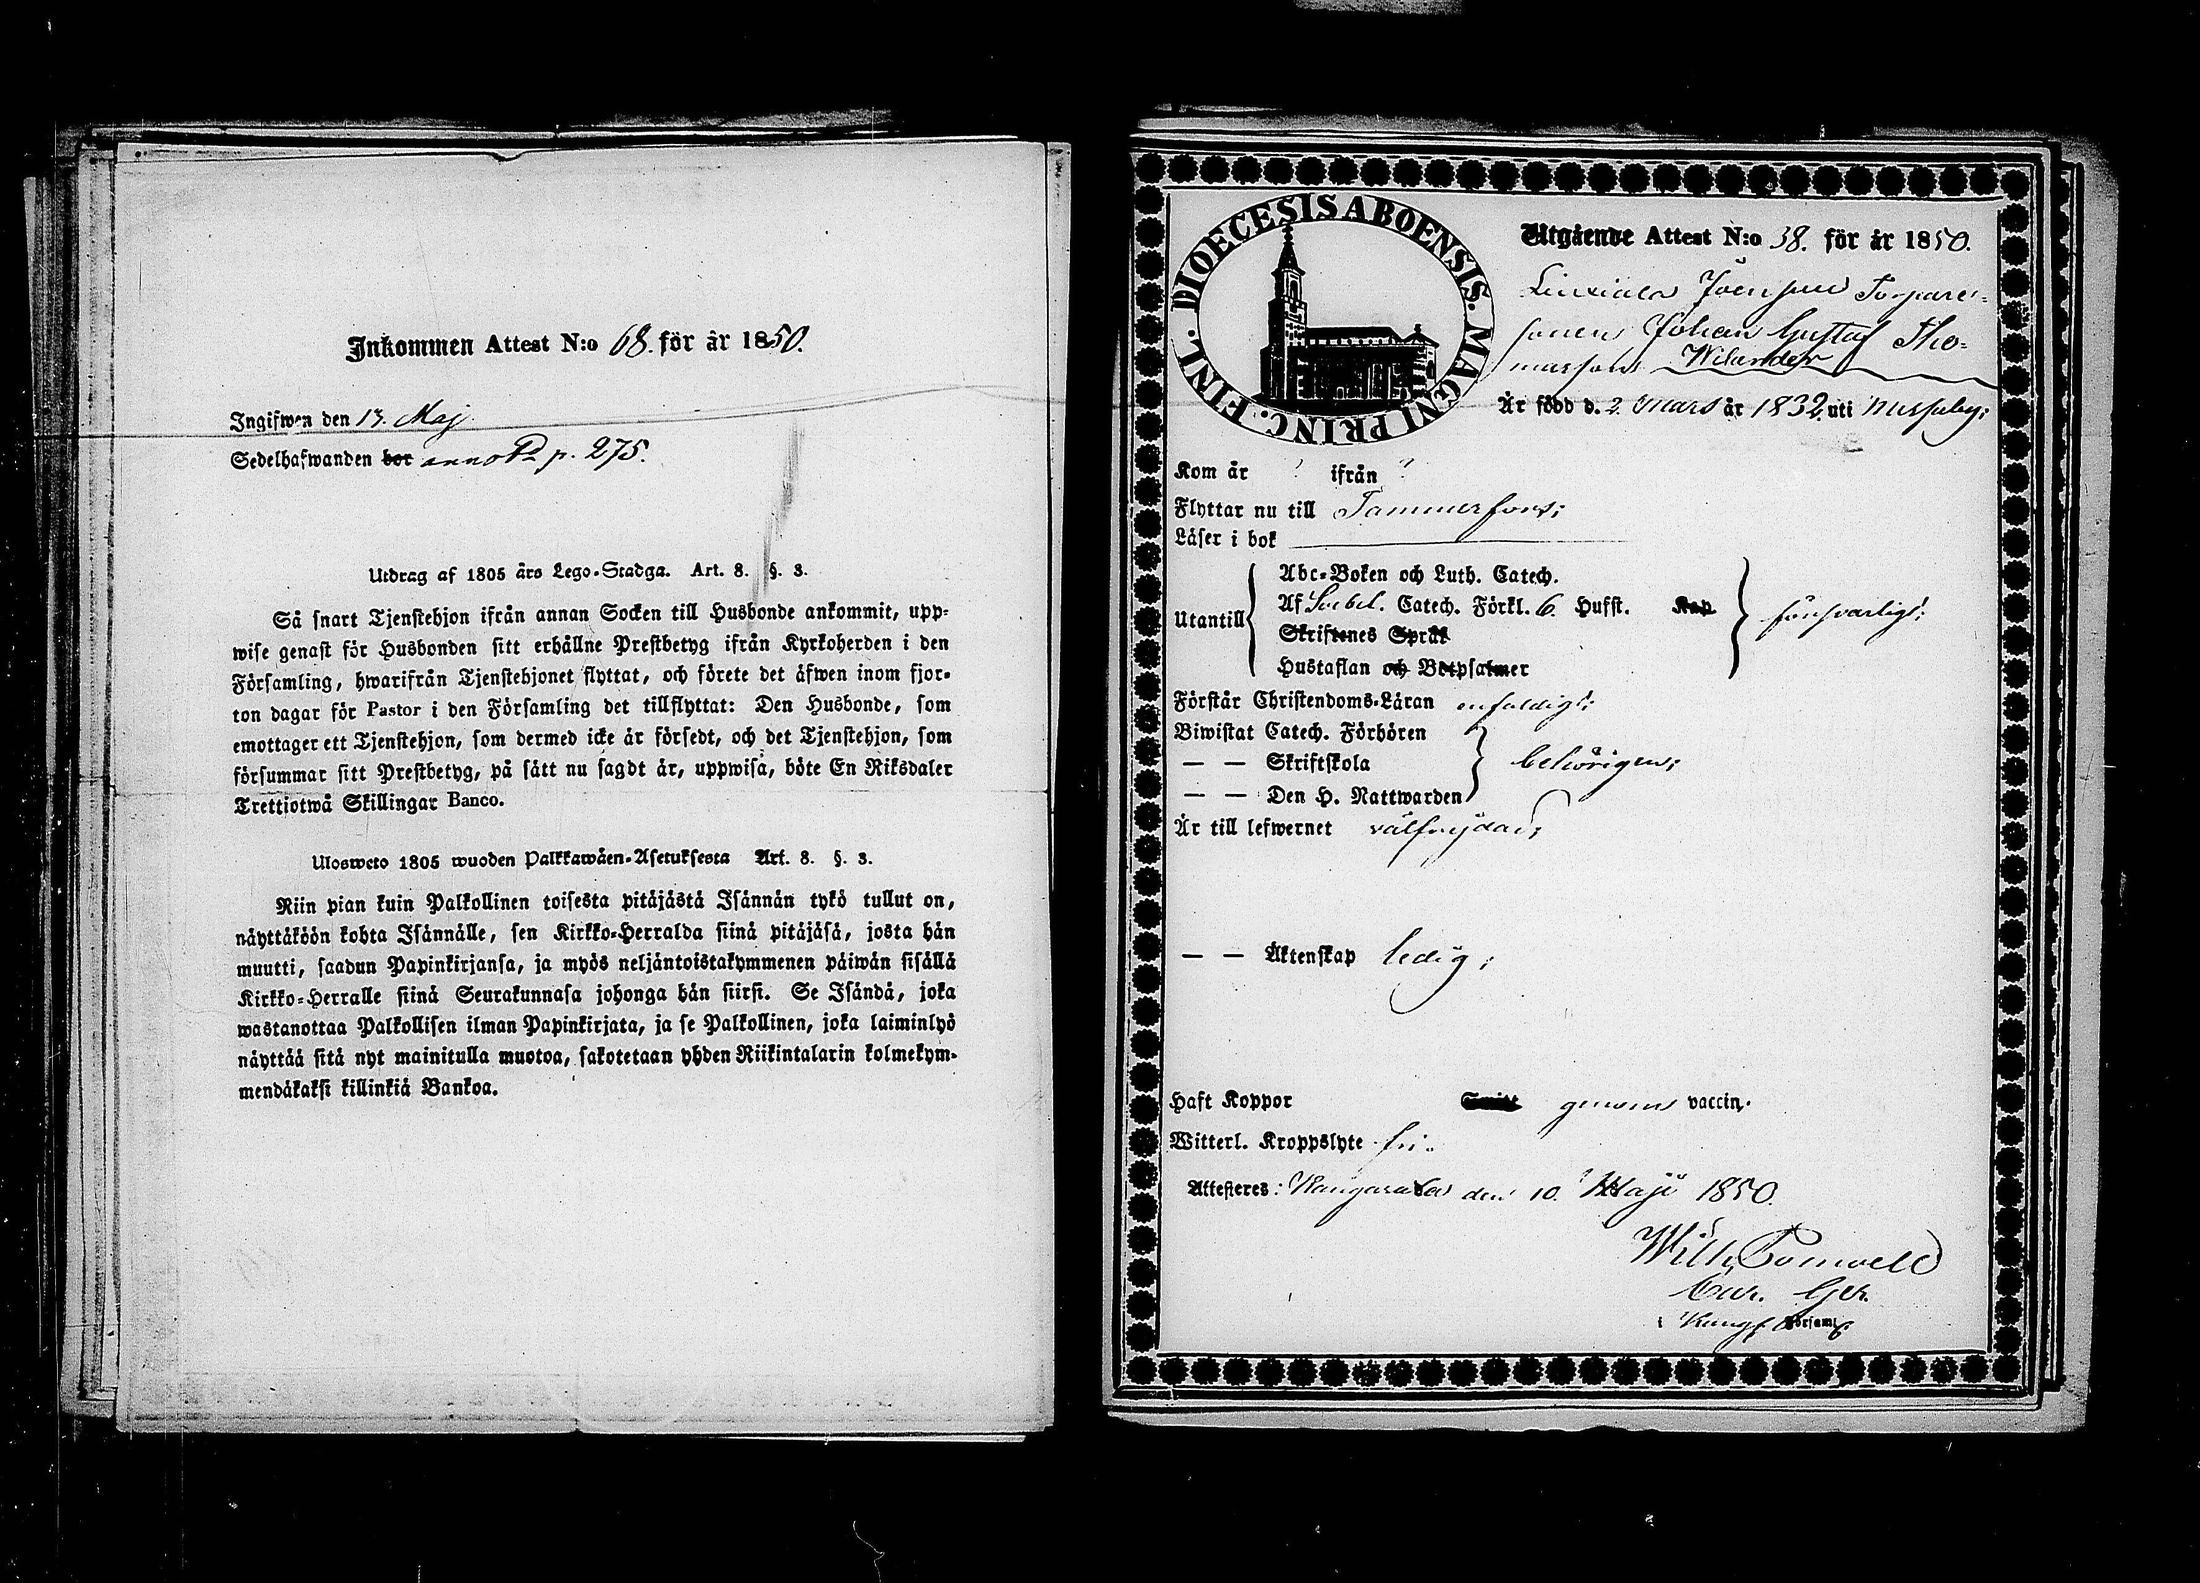 Inkommen Attest N:o 68. för år 1850.
Ingifwen den 13. Maj
Sedelhafwanden bor annot p. 275.
Utdrag af 1805 års Lego-Stadga. Art. 8. §. 3.
Så snart Tjenstehjon ifrån annan Socken till Husbonde ankommit, upp-
wise genast för Husbonden sitt erhållne Prestbetyg ifrån Kyrkoherden i den
Församling, hwarifrån Tjenstehjonet flyttat, och förete det äfwen inom fjor-
ton dagar för Pastor i den Församling det tillflyttat: Den Husbonde, som
emottager ett Tjenstehjon, som dermed icke är försedt, och det Tjenstehjon, som
försummar sitt Prestbetyg, på sätt nu sagdt är, uppwisa, böte En Riksdaler
Trettiotwå Skillingar Banco.
Ulosweto 1805 wuoden Palkkawäen-Asetuksesta Art. 8. §. 3.
Niin pian kuin Palkollinen toisesta pitäjästä Isännän tykö tullut on,
näyttäköön kohta Isännälle, sen Kirkko-Herralda siinä pitäjäsä, josta hän
muutti, saadun Papinkirjansa, ja myös neljäntoistakymmenen päiwän sisällä
Kirkko-Herralle siinä Seurakunnasa johonga hän siirsi. Se Isändä, joka
wastanottaa Palkollisen ilman Papinkirjata, ja se Palkollinen, joka laiminlyö
näyttää sitä nyt mainitulla muotoa, sakotetaan yhden Riikintalarin kolmekym-
mendäkaksi killinkiä Bankoa.
DIOECESIS ABOENSIS. MAGNI PRINC. FINL.
Utgående Attest N:o 38. för år 1850.
Torpare-
sonen Johan Gustaf Tho-
massons Welander
Är född d. 2. Mars år 1832, uti
Kom år ? ifrån ?
Flyttar nu till Tammerfors;
Läser i bok
Utantill
Abc-Boken och Luth. Catech.
Af Svebel. Catech. Förkl. 6. Hufst. Kap
Skriftenes Språk
Hustaflan och Botpsalmer
försvarligt;
Förstår Christendoms-Läran enfaldigt;
Biwistat Catech. Förhören
— — Skriftskola
— — Den H. Nattwarden
behörigen;
Är till lefwernet välfrejdad;
— — Äktenskap ledig;
Haft Koppor genom vaccin.
Witterl. Kroppslyte fri.
Attesteras: Kangasala den 10. Maji 1850.
Wilh.
Församl.